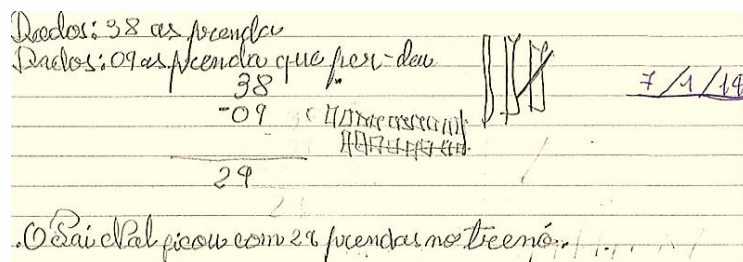 Dados: 38 as prenda
Dados: 09 as prenda que per-deu
38
-09
29
7/1/19
.O Pai Natal ficou com 29 prendas no treenó.